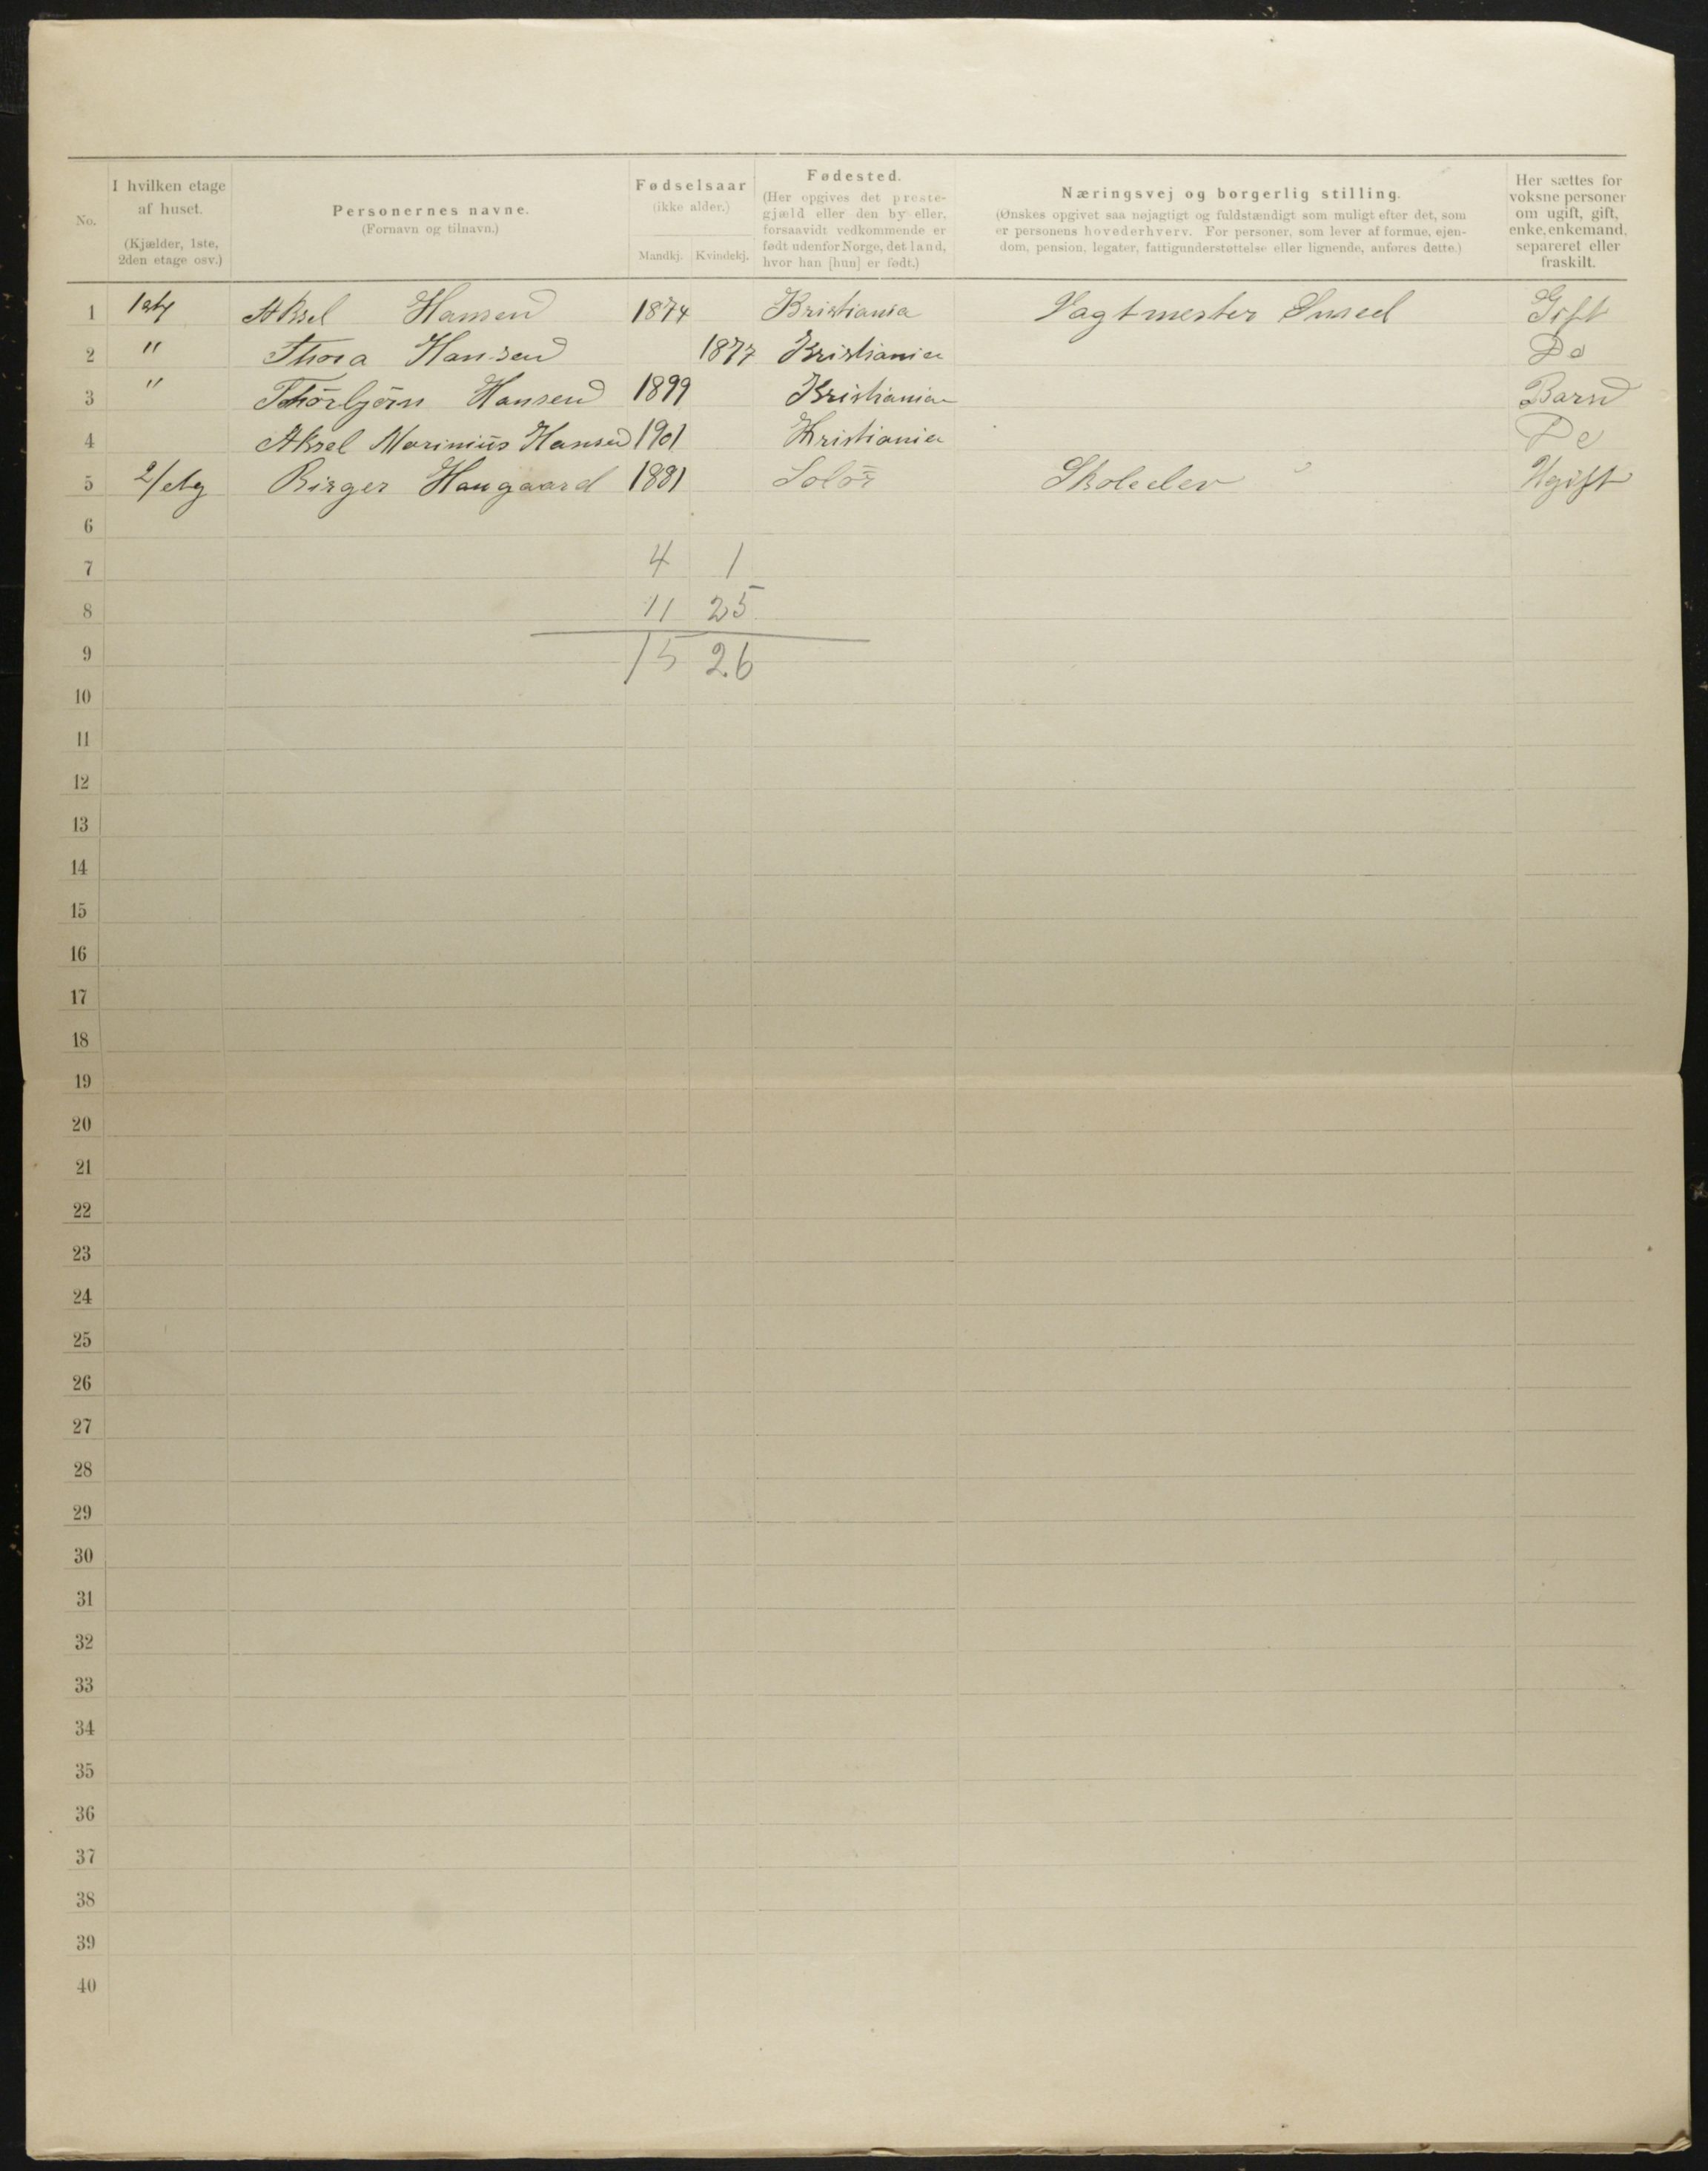 No.
I hvilken etage af huset.
(Kjælder, 1ste, 2den etage osv.)
Personernes navne.
(Fornavn og tilnavn.)
Fødselsaar
(ikke alder.)
Mandkj. Kvindekj.
Fødested.
(Her opgives det præste-
gjæld eller den by eller,
forsaavidt vedkommende er
født udenfor Norge, det land,
hvor han [hun] er født.)
Næringsvej og borgerlig stilling.
(Ønskes opgivet saa nøjagtigt og fuldstændigt som muligt efter det, som
er personens hovederhverv. For personer, som lever af formue, ejen-
dom, pension, legater, fattigunderstøttelse eller lignende, anføres dette.)
Her sættes for
voksne personer
om ugift, gift,
enke, enkemand,
separeret eller
fraskilt.
1 Aksel Hansen 1874 Kristiania Vagtmester Gift
2 " Thora Hansen 1877 Kristiania Do
3 " Thorbjørn Hansen 1899 Kristiania Barn
4 Aksel Marinius Hansen 1901 Kristiania Do
5 2/etg Birger Haugaard 1881 Solör Skoleelev Ugift
6
7 4 1
8 11 25
9 15 26
10
11
12
13
14
15
16
17
18
19
20
21
22
23
24
25
26
27
28
29
30
31
32
33
34
35
36
37
38
39
40